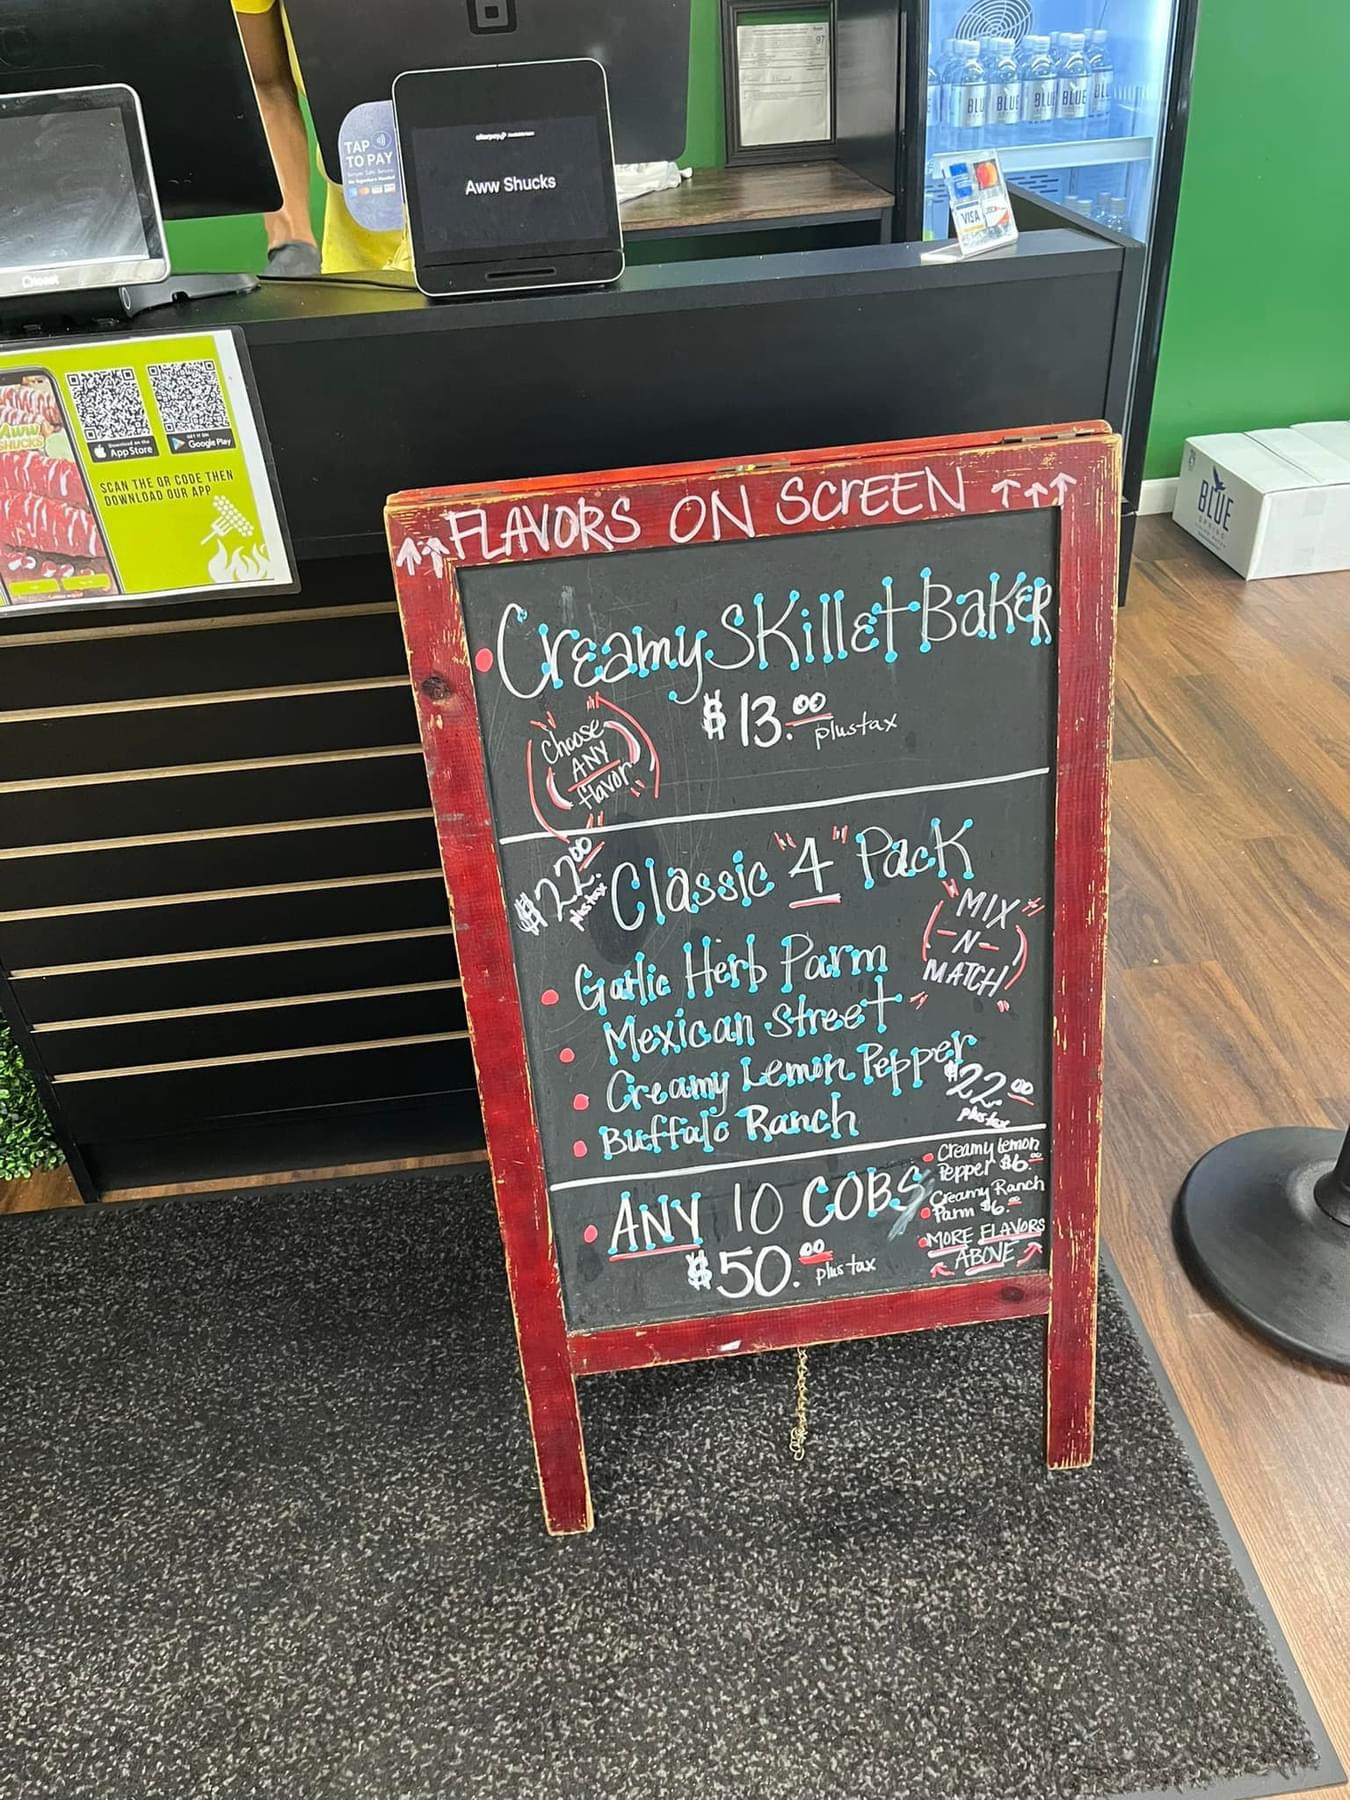 97
BLUE BLUE BLUE BLUE BLUE
TAP
TO PAY
afterpay
Aww Shucks
VISA
Clover
Download on the
App Store
GET IT ON
Google Play
Aww
SHUCKS
SCAN THE QR CODE THEN
DOWNLOAD OUR APP
BLUE
SPRING
FLAVORS ON SCREEN
Creamy Skillet Baker
$13.00 plus tax
Choose
ANY
flavor
$22.00
plus tax
Classic "4" Pack
MIX
-N-
MATCH
Garlic Herb Parm
Mexican Street
Creamy Lemon Pepper
Buffalo Ranch
$22.00
plus tax
ANY 10 COBS
$50.00 plus tax
Creamy Lemon
Pepper $6.00
Creamy Ranch
Parm $6.00
MORE FLAVORS
ABOVE